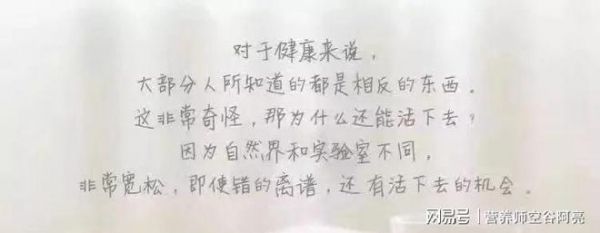 对于健康来说，
大部分人所知道的都是相反的东西。
这非常奇怪，那为什么还能活下去？
因为自然界和实验室不同，
非常宽松，即使错的离谱，还有活下去的机会。
网易号 | 营养师空谷阿亮